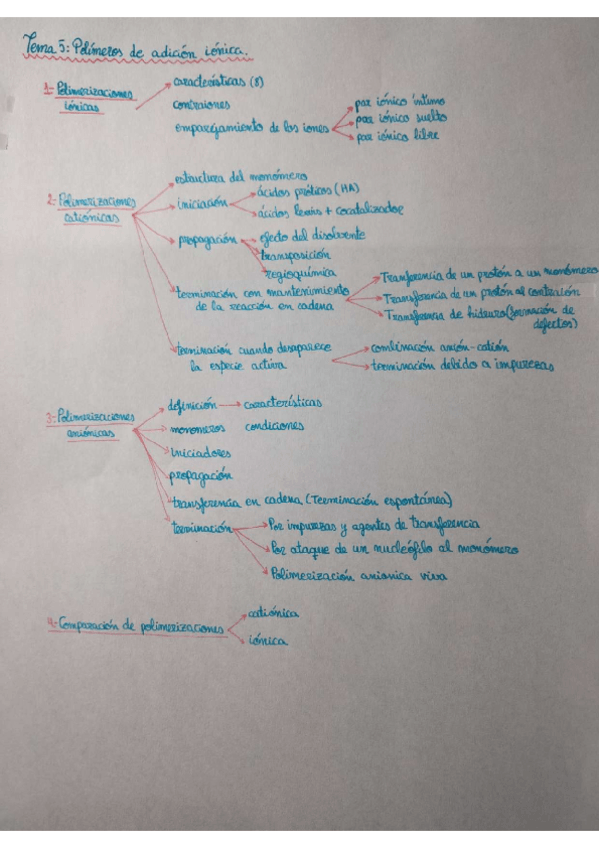 Tema 5: Polímeros de adición iónica.
1- Polimerizaciones iónicas
características (8)
contraiones
emparejamiento de los iones
par iónico íntimo
par iónico suelto
par iónico libre
2- Polimerizaciones catiónicas
estructura del monómero
iniciación
ácidos próticos (HA)
ácidos Lewis + cocatalizador
propagación
efecto del disolvente
transposición
regioquímica
terminación con mantenimiento
de la reacción en cadena
Tranferencia de un protón a un monómero
Transferencia de un protón al contraión
Transferencia de hidruro (formación de
defectos)
terminación cuando desaparece
la especie activa
combinación anión-catión
terminación debido a impurezas
3- Polimerizaciones
aniónicas
definición
características
monómeros
condiciones
iniciadores
propagación
transferencia en cadena (Terminación espontánea)
terminación
Por impurezas y agentes de transferencia
Por ataque de un nucleófilo al monómero
Polimerización anionica viva
4- Comparación de polimerizaciones
catiónica
iónica